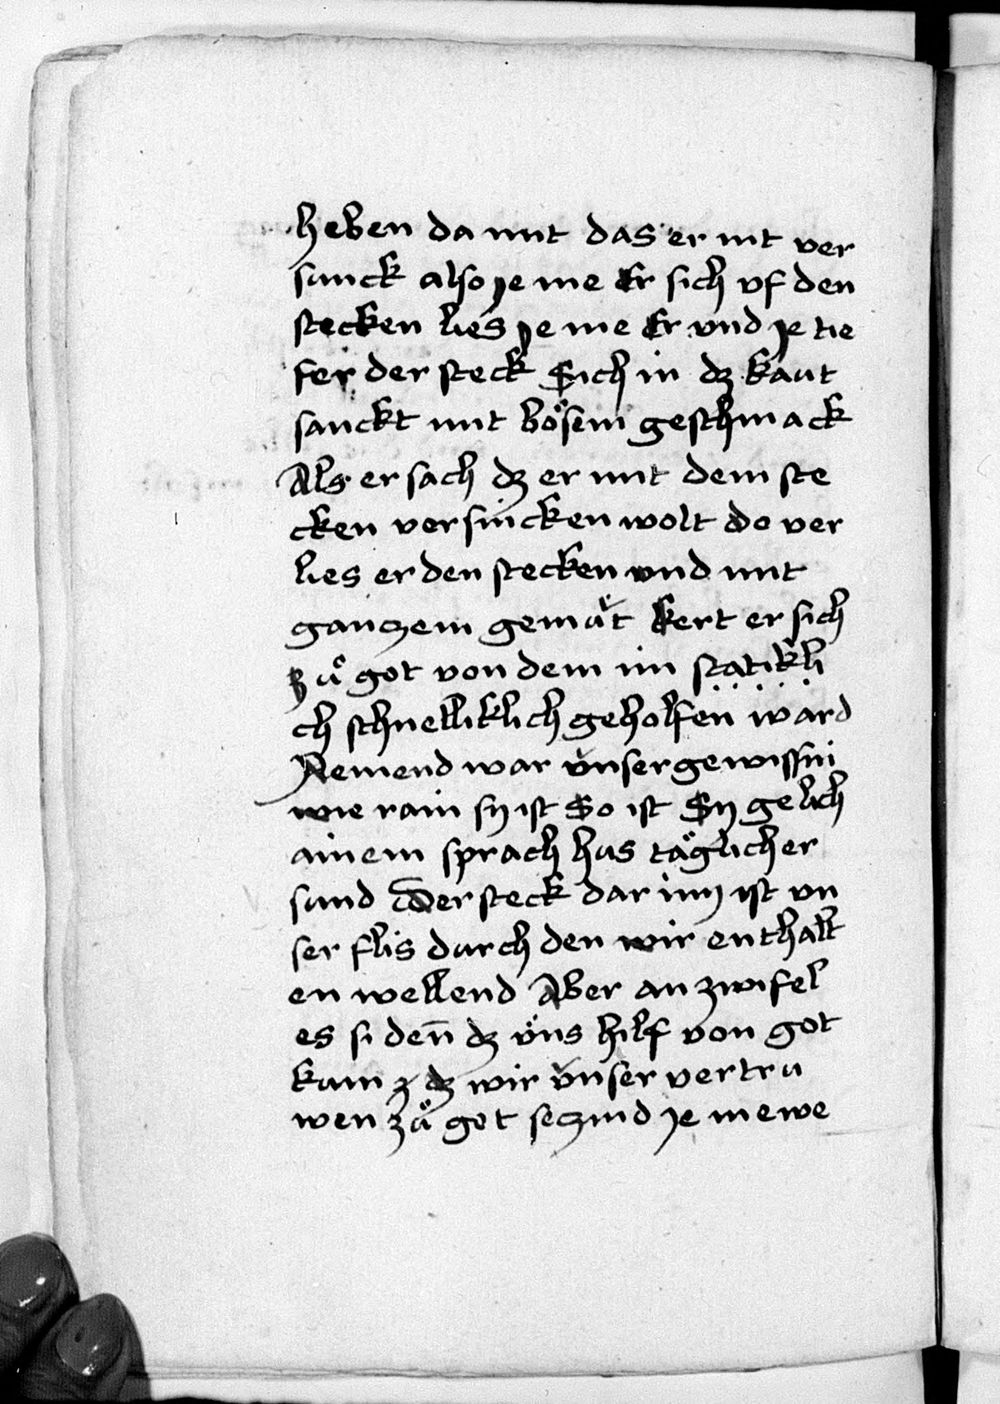 heben da mit das er nit ver
sunck also je me Er sich vf den
stecken lies je me Er vnd je tie
fer der steck Sich in dz kaut
sanckt mit bösem geschmack
Als er sach dz er mit dem ste
cken versincken wolt do ver
lies er den stecken vnd mit
ganczem gemüt kert er sich
zuͦ got von dem im
ch schnelliklich geholfen ward
Nemend war vnser gewissni
wie rain sy ist So ist Sy gelich
ainem sprach hus täglicher
sund Der steck dar inn ist vn
ser flis durch den wir enthalt
en wellend Aber an zwifel
es si den̄ dz v̈ns hilf von got
kum dz wir vnser vertru
wen zuͦ got seczind je me we